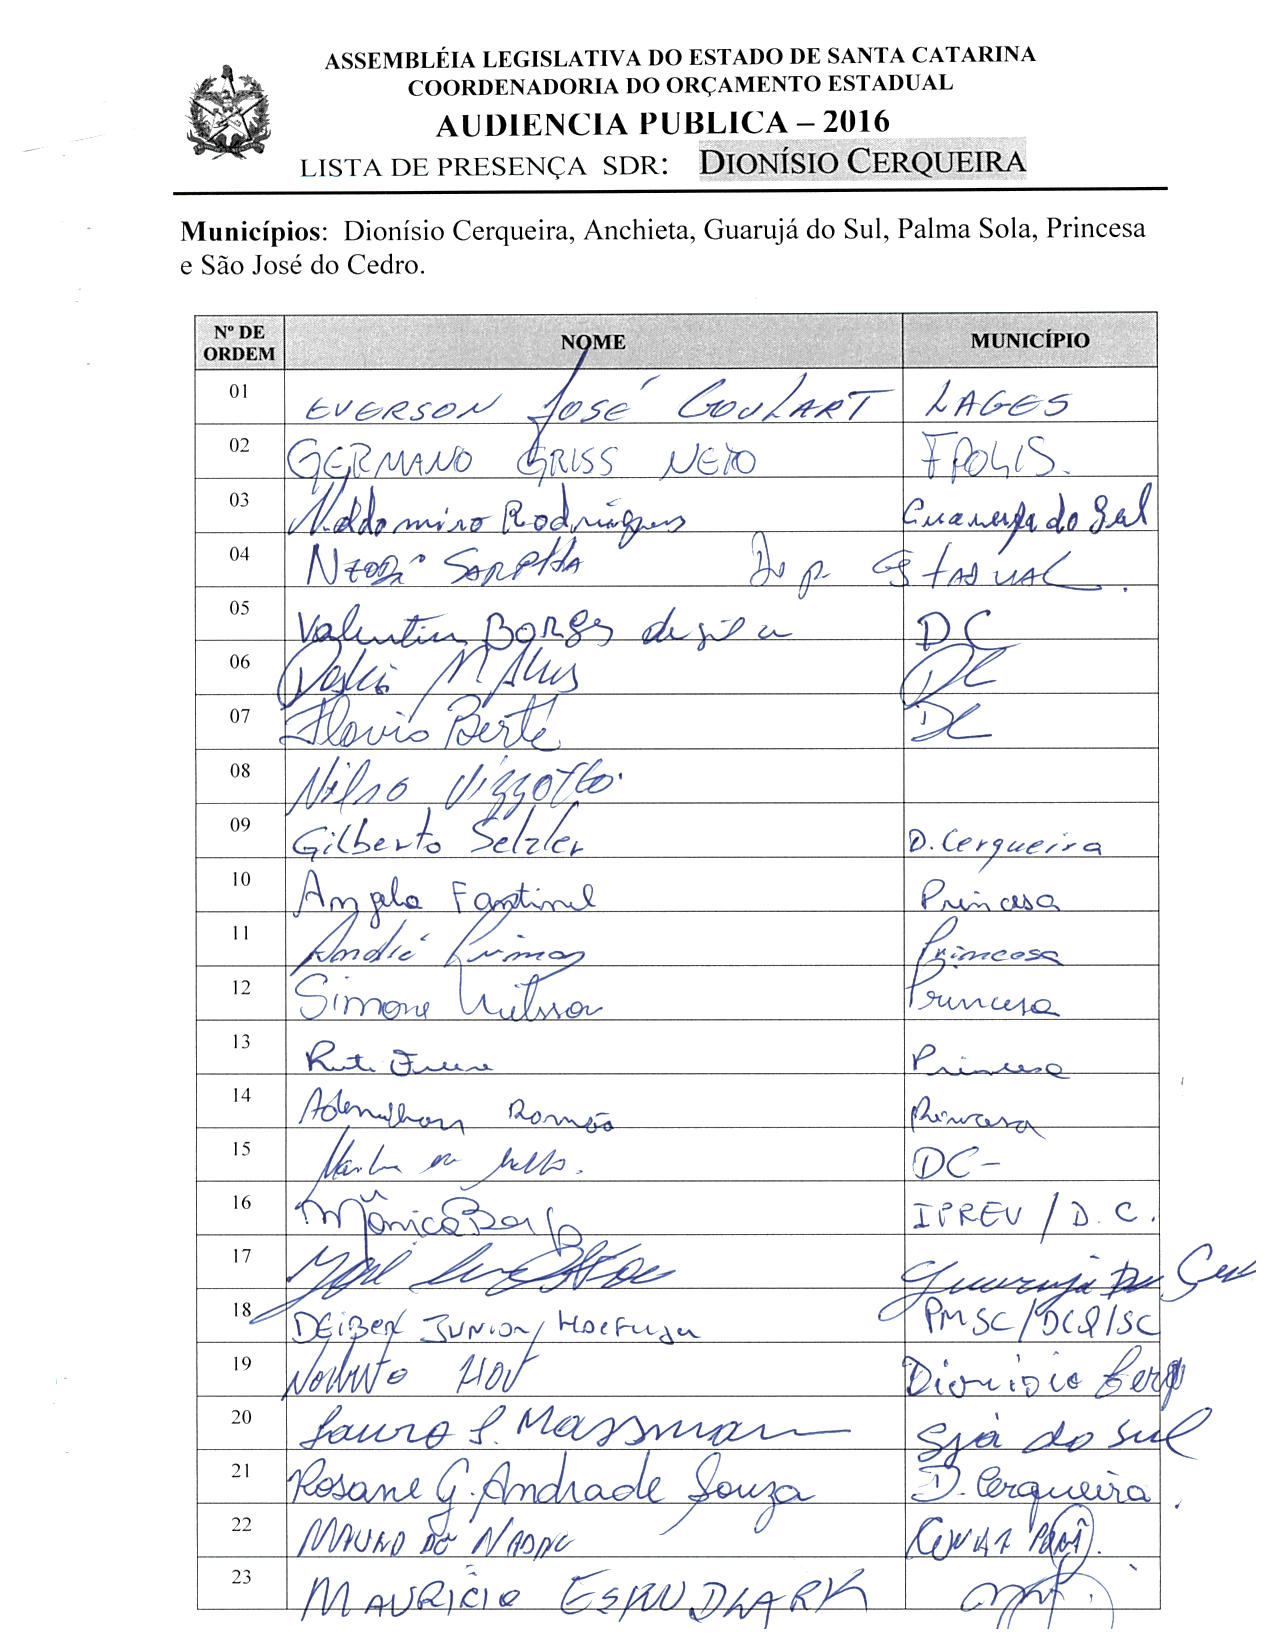 ASSEMBLÉIA LEGISLATIVA DO ESTADO DE SANTA CATARINA
COORDENADORIA DO ORÇAMENTO ESTADUAL
AUDIENCIA PUBLICA – 2016
LISTA DE PRESENÇA SDR: DIONÍSIO CERQUEIRA
Municípios: Dionísio Cerqueira, Anchieta, Guarujá do Sul, Palma Sola, Princesa
e São José do Cedro.
Nº DE ORDEM NOME MUNICÍPIO
01 EVERSON JOSÉ GOULART LAGES
02 GERMANO GRISS NETO FPOLIS.
03 Valdomiro Rodrigues Guaruja do Sul
04 Dep. ESTADUAL.
05 Valentin Borges de Silva DC
06 DC
07 Flavio Berté DC
08 Nilso Vizzotto.
09 Gilberto Selzler D. Cerqueira
10 Angela Fantinel Princesa
11 André Princesa
12 Simone Princesa
13 Princesa
14 Romão Princesa
15 DC-
16 Mônica IPREV / D. C.
17 Guarujá Do Sul
18 DEIBER JUNIOR PMSC/DCQ/SC
19 Dionisio Cerq
20 Lauro S. Massmann Gjá do Sul
21 Rosane G. Andrade Souza D. Cerqueira.
22 MAURO DE NADAL
23 MAURICIO ESKUDLARK